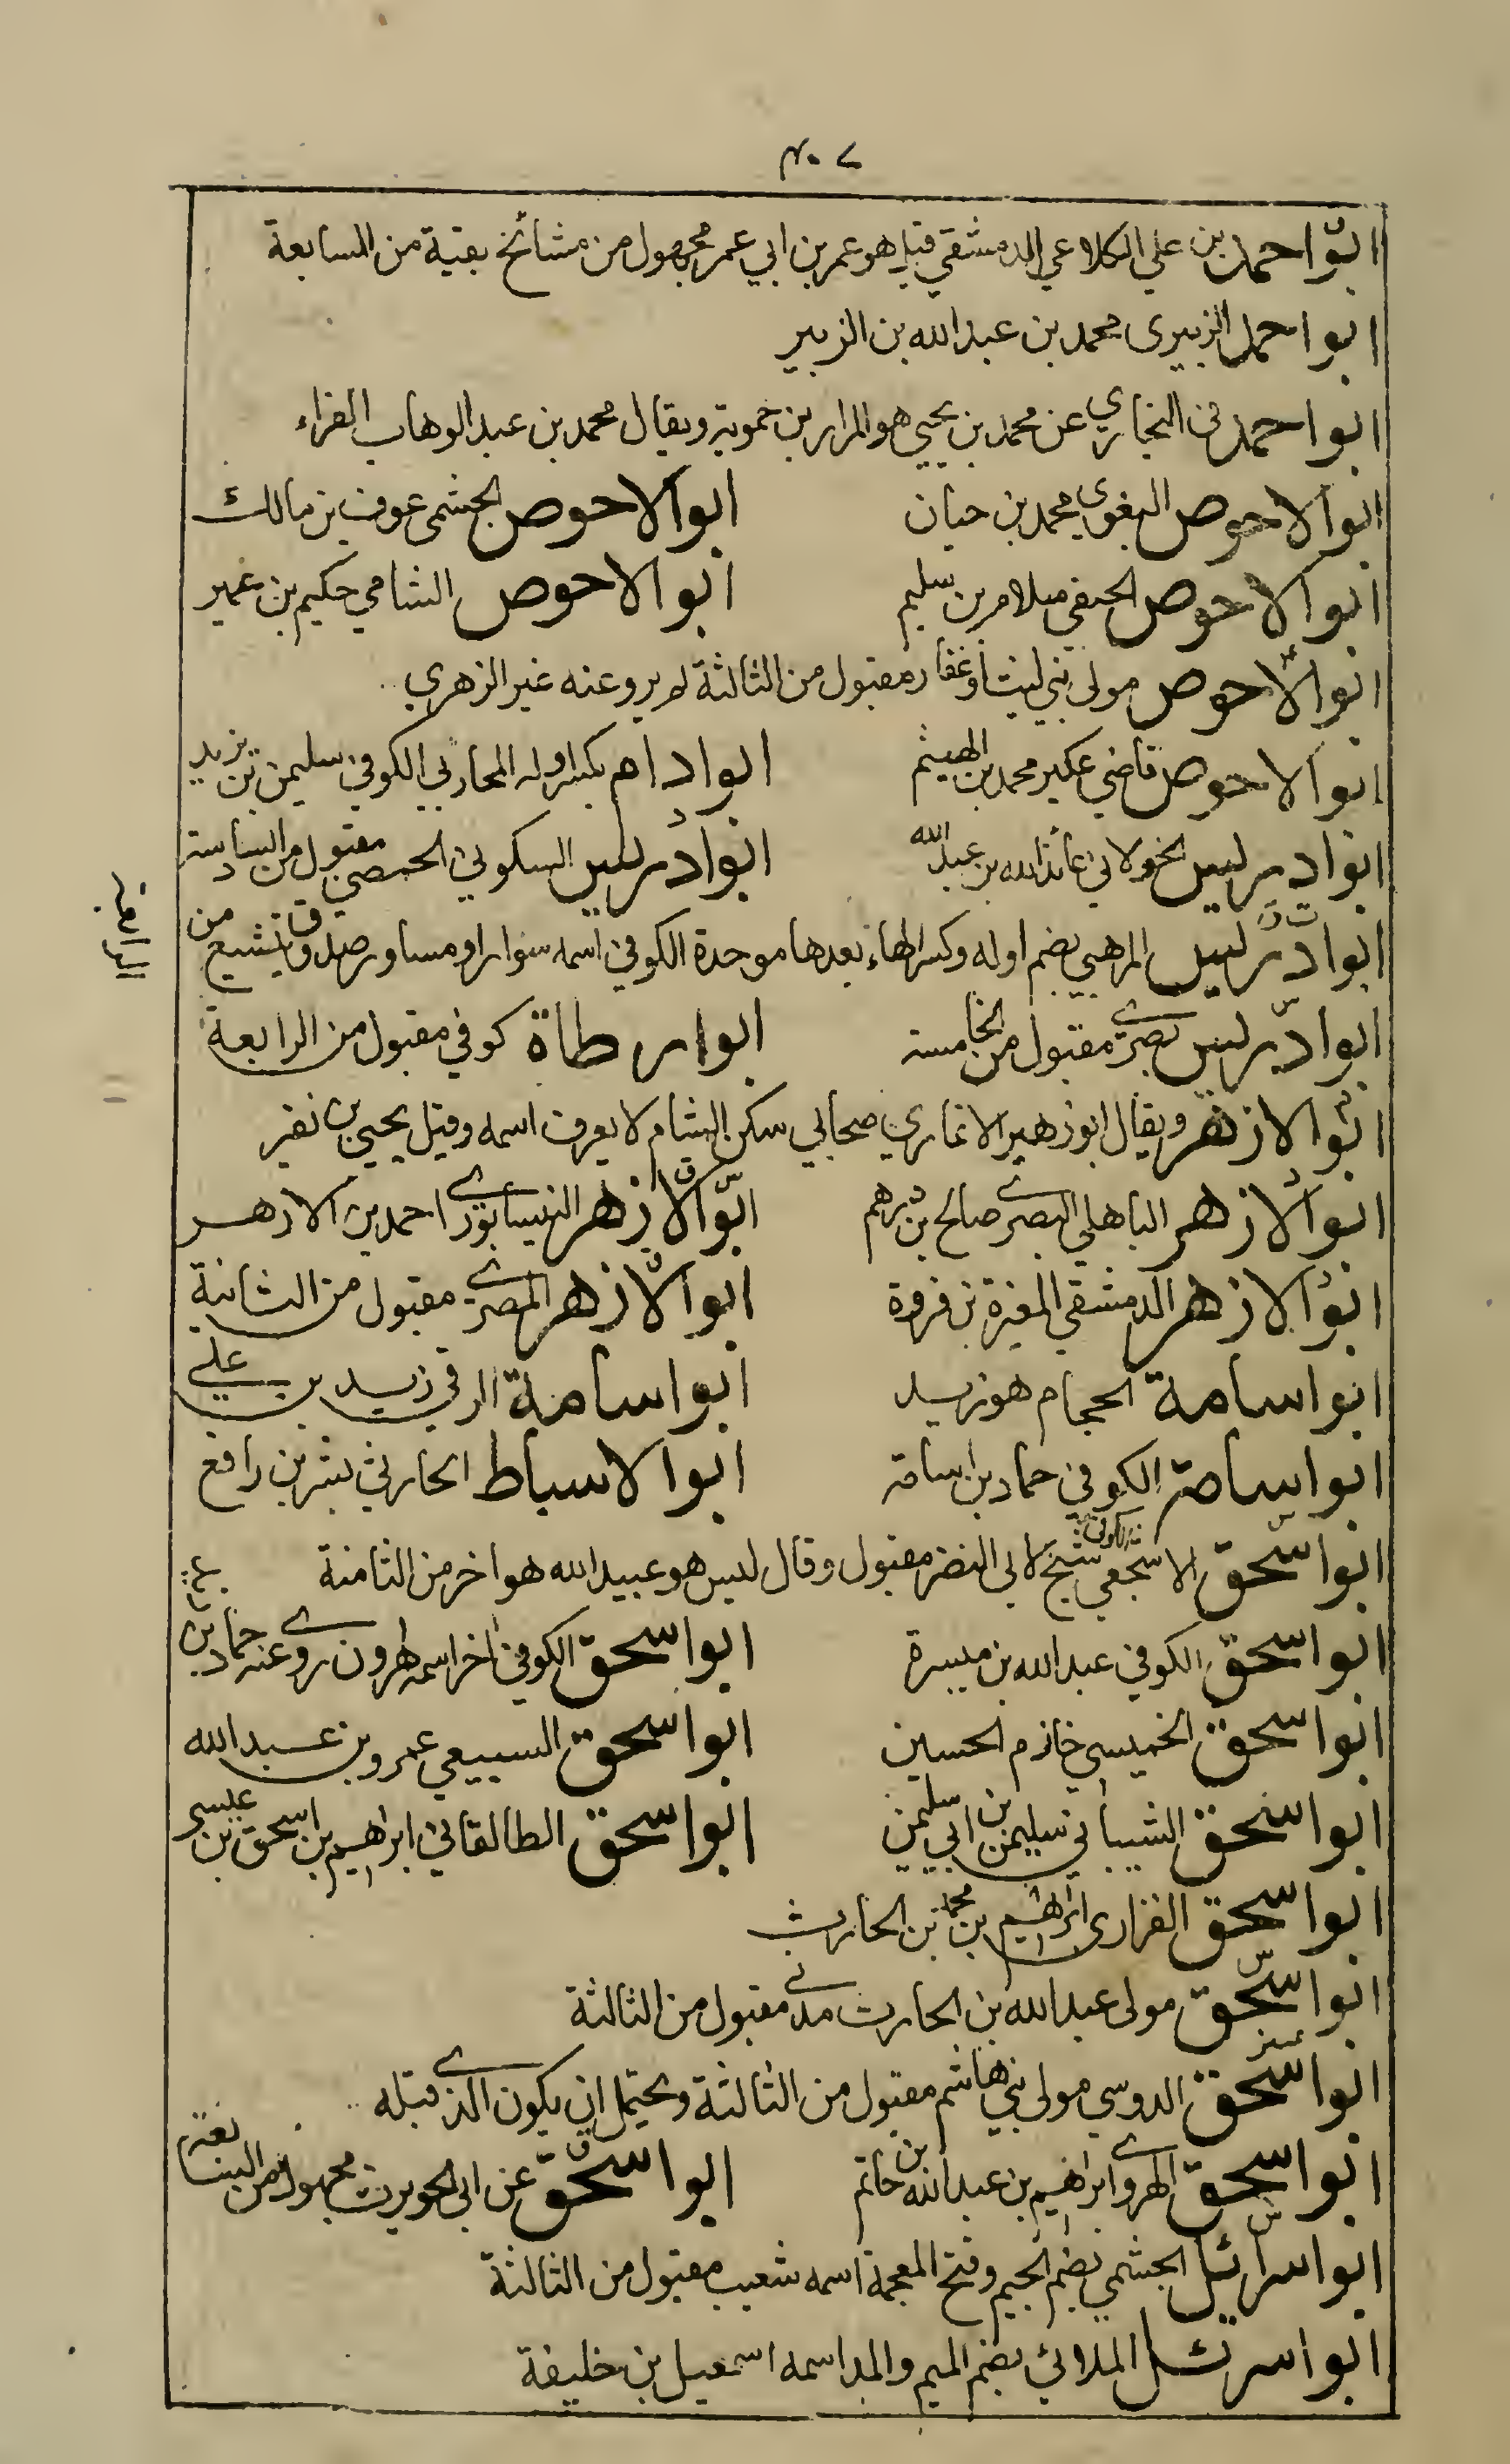 ٤٠٧
ابو احمد بن علي الكلاعي الدمشقي قيل هو عمر بن ابي عمر مجهول من مشائخ بقية من السابعة
ابو احمد الزبيري محمد بن عبد الله بن الزبير
ابو احمد في البخاري عن محمد بن يحيي هو المرار بن حموية ويقال محمد بن عبد الوهاب الفراء
ابو الاحوص البغوي محمد بن حيان ابو الاحوص الجشمي عوف بن مالك
ابو الاحوص الحنفي سلام بن سليم ابو الاحوص الشامي حكيم بن عمير
ابو الاحوص مولى بني ليث أو غفار مقبول من الثالثة لم يرو عنه غير الزهري
ابو الاحوص قاضي عكبر محمد بن الهيثم ابو ادام بكسر اوله المحاربي الكوفي سليمن بن يزيد
ابو ادريس الخولاني عائذ الله بن عبد الله ابو ادريس السكوني الحمصي مقبول من السادسة
ابو ادريس المرهبي بضم اوله وكسر الهاء بعدها موحدة الكوفي اسمه سوار او مساور صدوق يتشيع من
الرابعة
ابو ادريس بصري مقبول من الخامسة ابو ارطاة كوفي مقبول من الرابعة
ابو الازهر ويقال ابو زهير الانماري صحابي سكن الشام لا يعرف اسمه وقيل يحيي بن نفير
ابو الازهر الباهلي البصري صالح بن درهم ابو الازهر النيسابوري احمد بن الازهر
ابو الازهر الدمشقي المغيرة بن فروة ابو الازهر المصري مقبول من الثانية
ابو اسامة الحجام هو زيد ابو اسامة الرقي زيد بن علي
ابو اسامة الكوفي حماد بن اسامة ابو الاسباط الحارثي بشر بن رافع
ابو اسحق الاشجعي الكوفي شيخ لابي النضر مقبول وقال ليس هو عبيد الله هو اخر من الثامنة
ابو اسحق الكوفي عبد الله بن ميسرة ابو اسحق الكوفي اخر اسمه هرون روى عنه حماد بن
ابو اسحق الخميسي خازم الحسين ابو اسحق السبيعي عمرو بن عبد الله
ابو اسحق الشيباني سليمن بن ابي سليمن ابو اسحق الطالقاني ابراهيم بن اسحق بن عيسى
ابو اسحق الفزاري ابراهيم بن محمد بن الحارث
ابو اسحق مولى عبد الله بن الحارث مدني مقبول من الثالثة
ابو اسحق الدوسي مولى بني هاشم مقبول من الثالثة ويحتمل ان يكون الذي قبله
ابو اسحق الهروي ابراهيم بن عبد الله بن حاتم ابو اسحق عن ابي الحويرث مجهول من السابعة
ابو اسرائيل الجشمي بضم الجيم وفتح المعجمة اسمه شعيب مقبول من الثالثة
ابو اسرئيل الملائي بضم الميم والمد اسمه اسمعيل بن خليفة